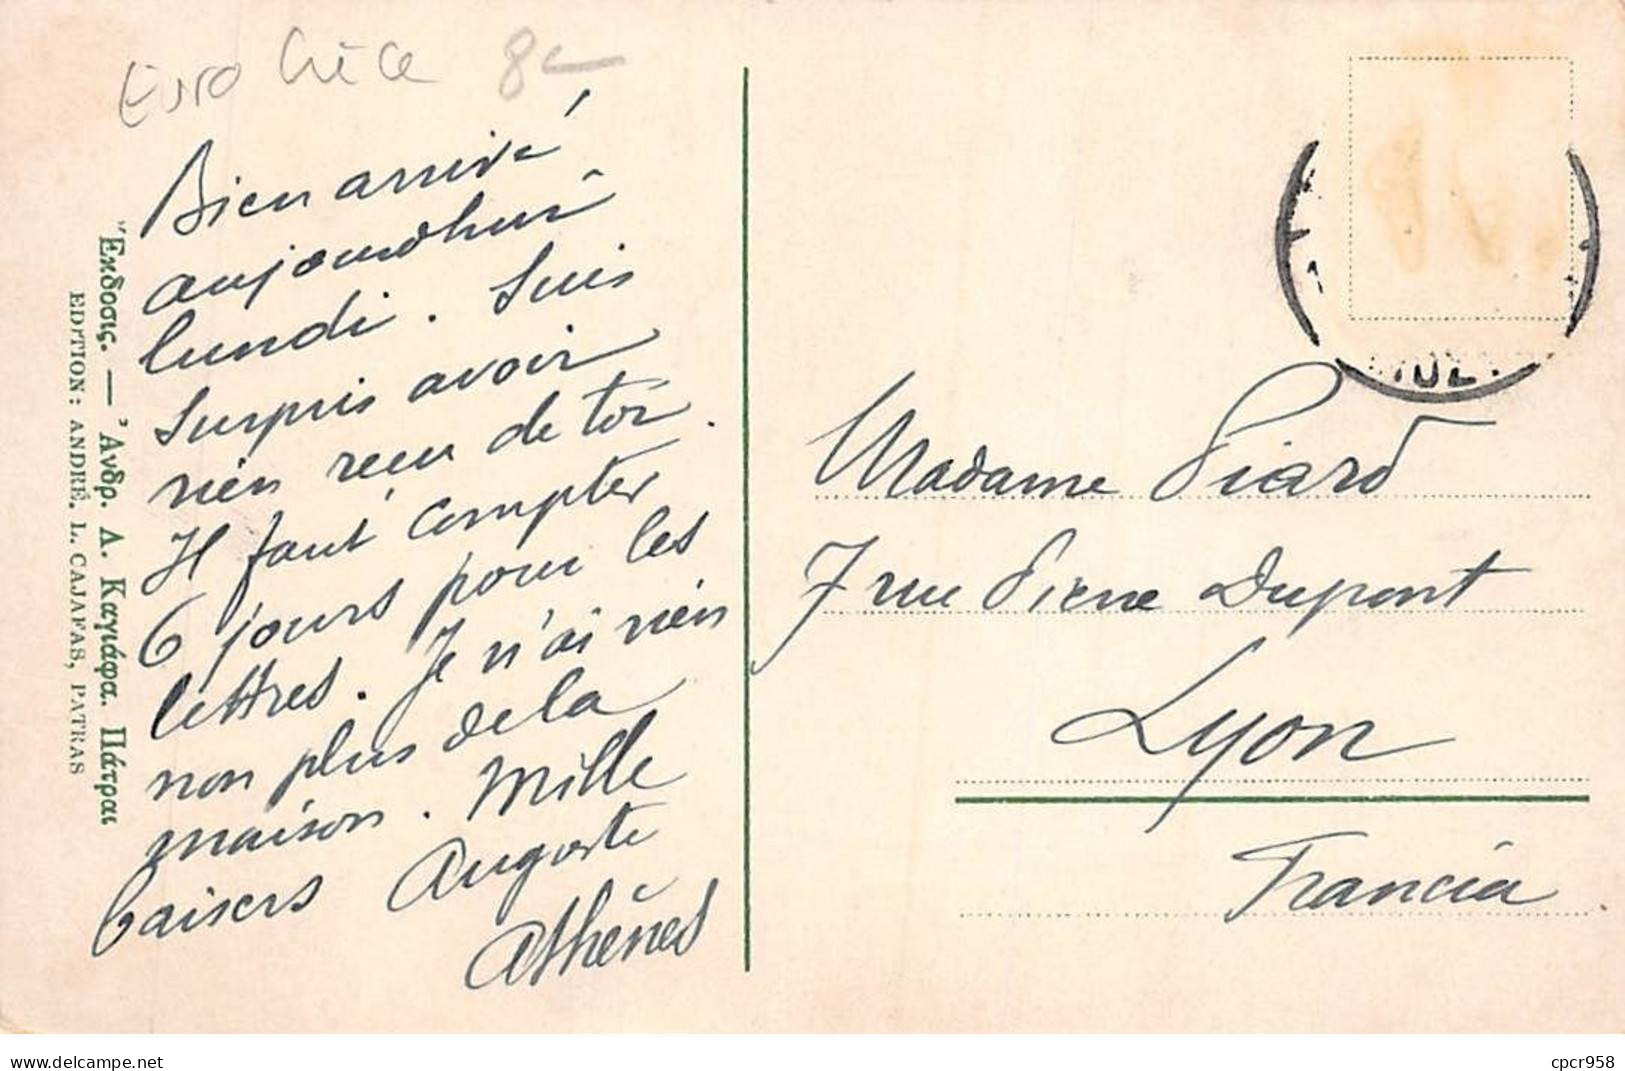 Euro Grèce 8-
Bien arrivé
aujourd'hui
lundi. Suis
surpris avoir
rien reçu de toi.
Il faut compter
6 jours pour les
lettres. Je n'ai rien
non plus de la
maison. Mille
baisers Auguste
Athènes
Ἔκδοσις. — Ἀνδρ. Λ. Καγιάφα. Πάτραι
EDITION: ANDRÉ. L. CAJAFAS, PATRAS
Madame Piard
7 rue Pierre Dupont
Lyon
Francia
delcampe.net
cpcr958